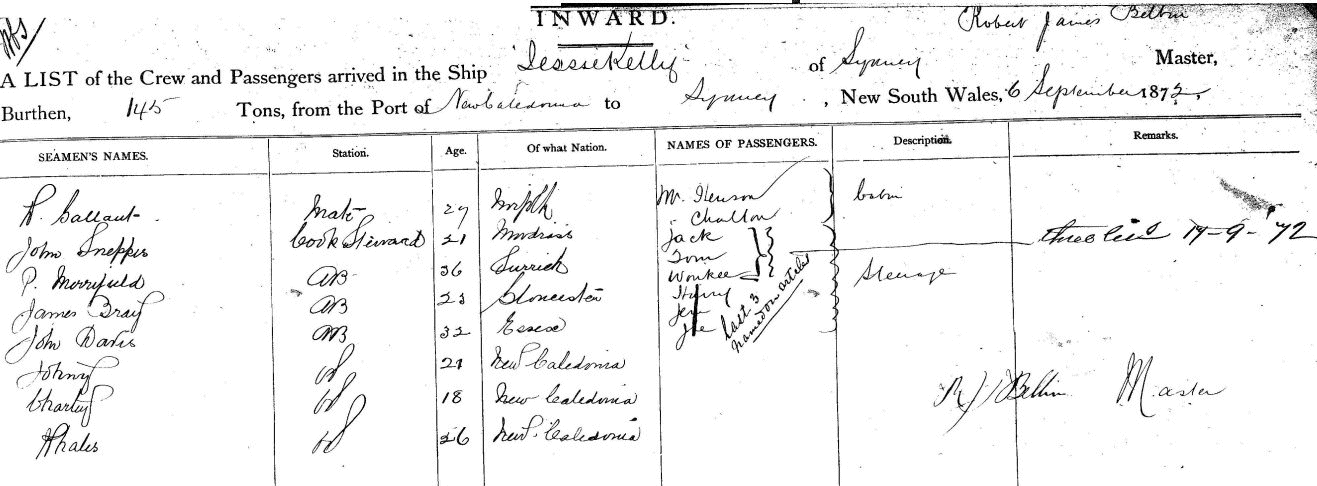 INWARD.
Robert James Belbin
A LIST of the Crew and Passengers arrived in the Ship Jessie Kelly of Sydney Master,
Burthen, 145 Tons, from the Port of New Caledonia to Sydney, New South Wales, 6 September 1872,
SEAMEN'S NAMES. Station. Age. Of what Nation. NAMES OF PASSENGERS. Description. Remarks.
Mate 29 Norfolk Mr. Henson Cabin
Charlton
John Cook Steward 21 Jack 19-9-'72
Tom
P. Merrifield AB 36 Wonkee Steerage
James Bray AB 23 Gloucester Harry
Jem
John Davis AB 32 Essex Joe
last 3
named on articles
Johny 21 New Caledonia
Charley 18 New Caledonia
Whales 26 New Caledonia
R J Belbin Master